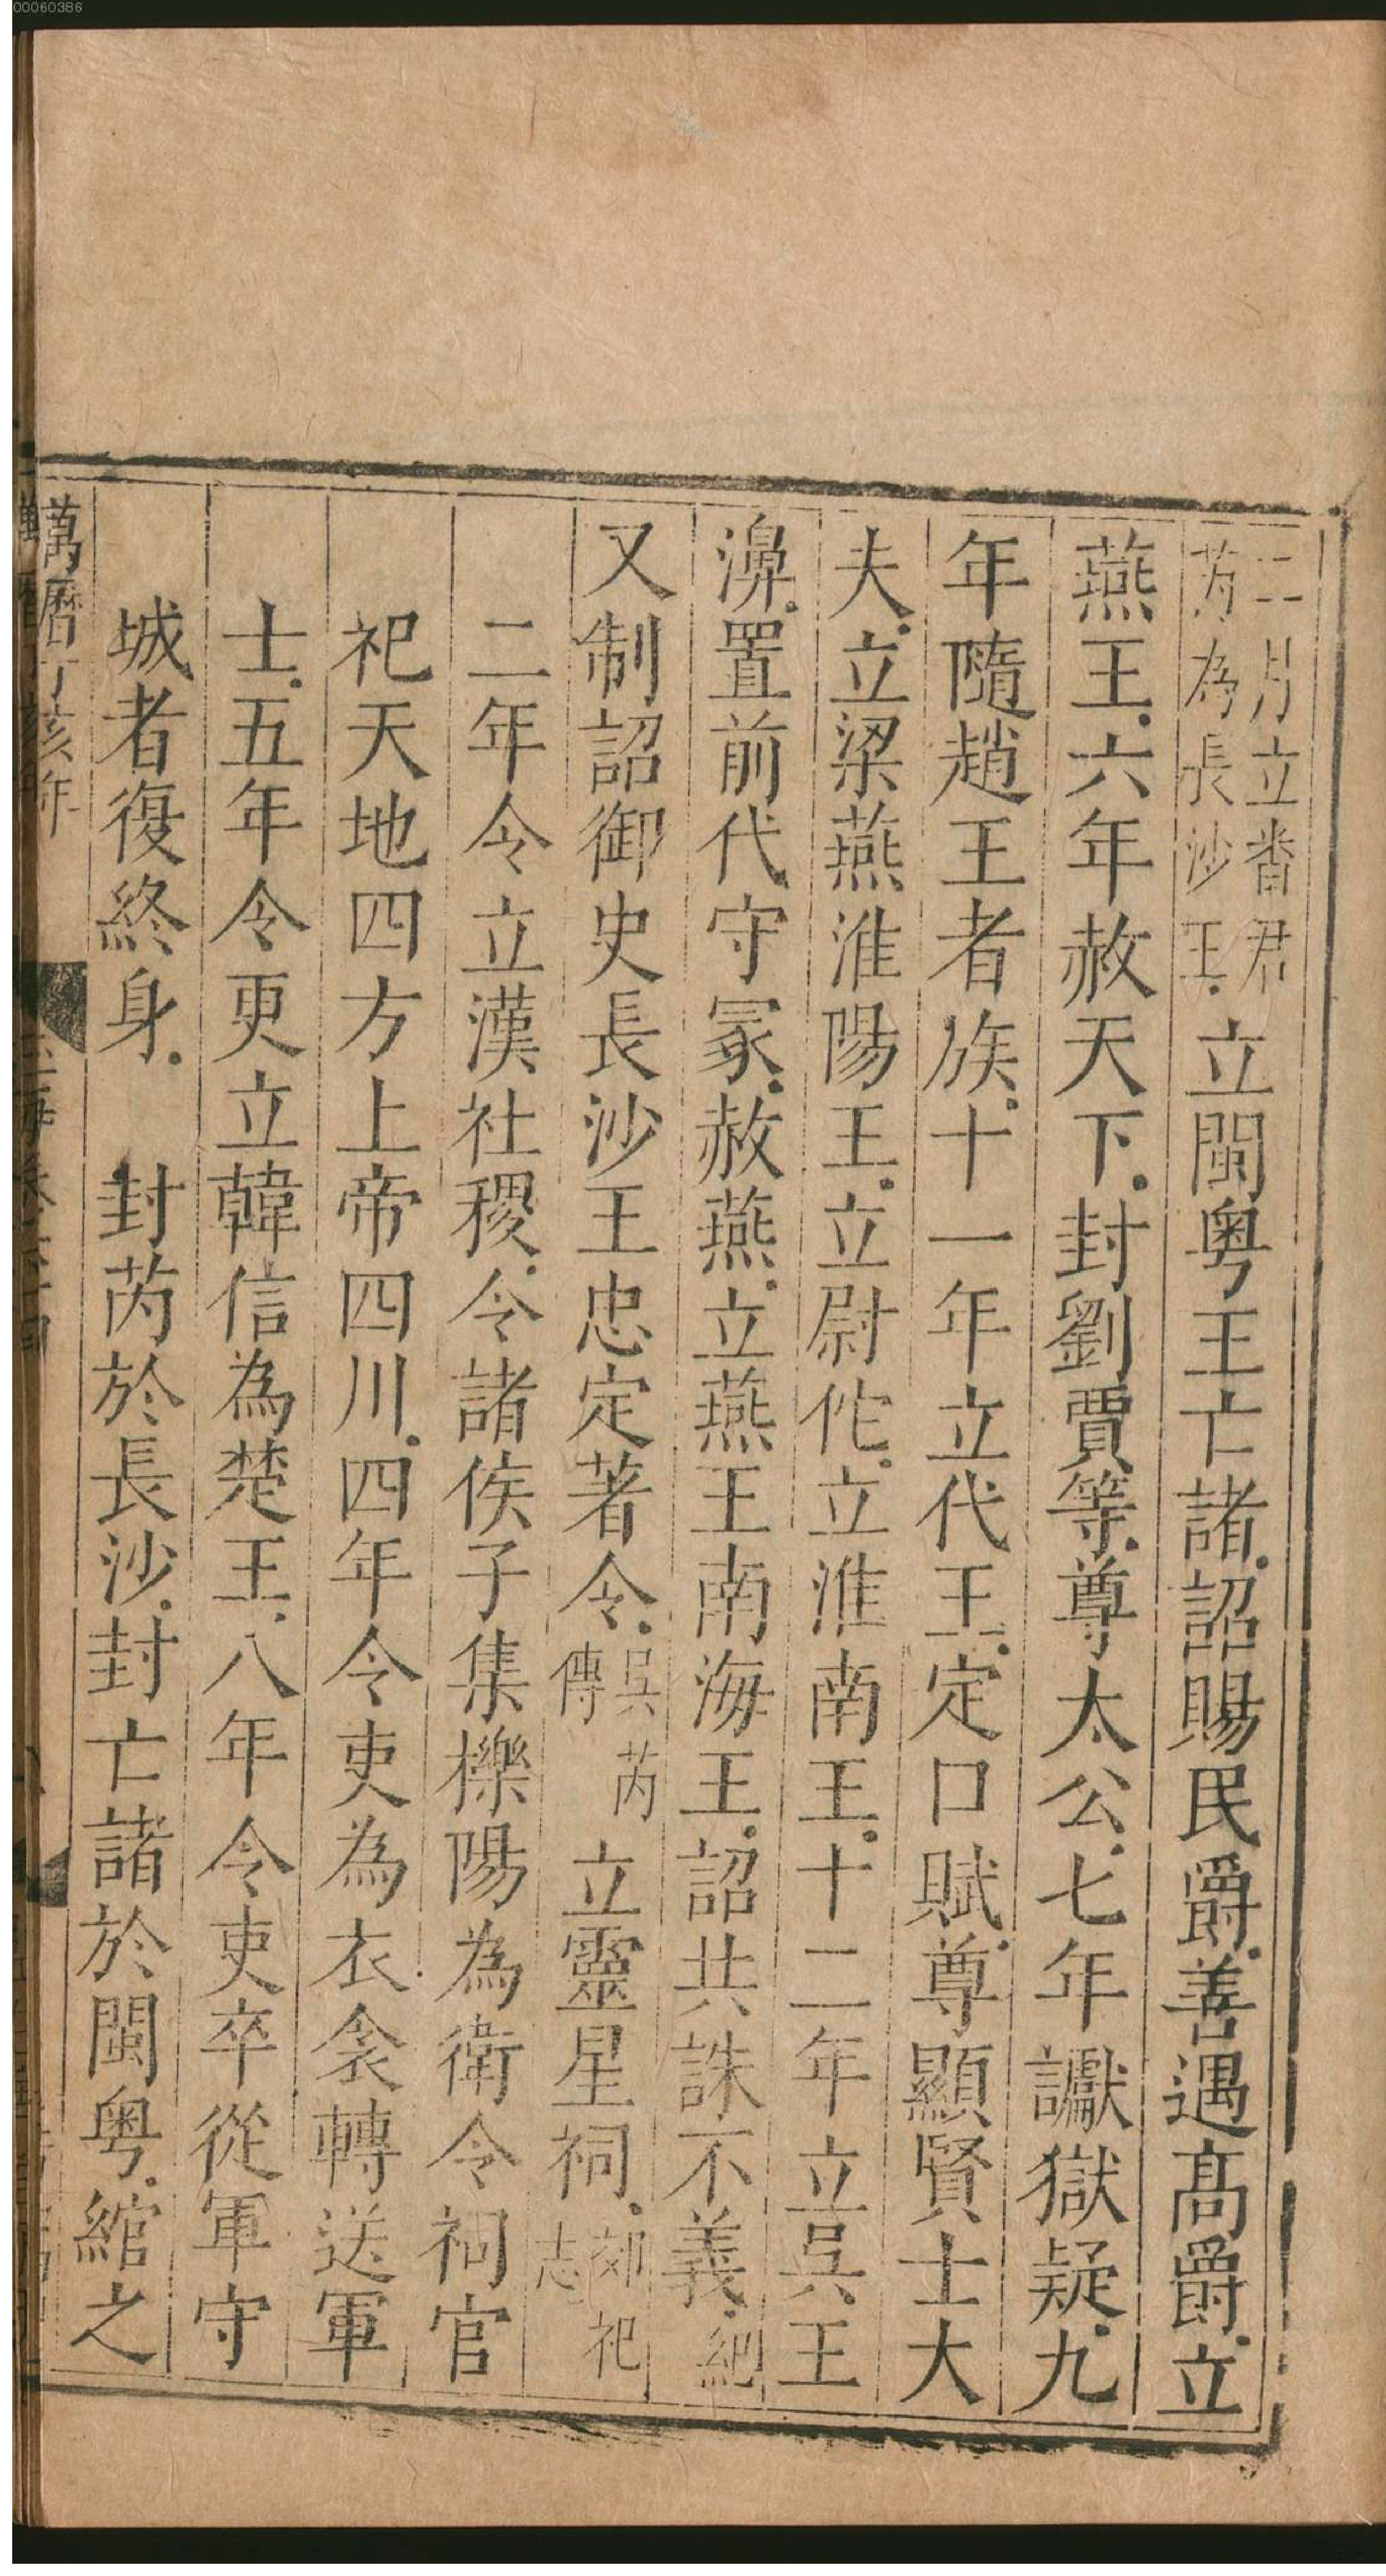 00060386
二月立番君
芮為長沙王
立閩粤王亡諸詔賜民爵善遇髙爵立
燕王六年赦天下封劉賈等尊太公七年讞獄疑九
年隨趙王者族十一年立代王定口賦尊顯賢士大
夫立梁燕淮陽王立尉佗立淮南王十二年立吳王
濞置前代守冡赦燕立燕王南海王詔共誅不義紀
又制詔御史長沙王忠定著令吳芮傳立靈星祠郊祀志
二年令立漢社稷令諸侯子集櫟陽為衛令祠官
祀天地四方上帝四川四年令吏為衣衾轉送軍
士五年令更立韓信為楚王八年令吏卒從軍守
城者復終身　封芮於長沙封亡諸於閩粤綰之
萬曆丁亥年